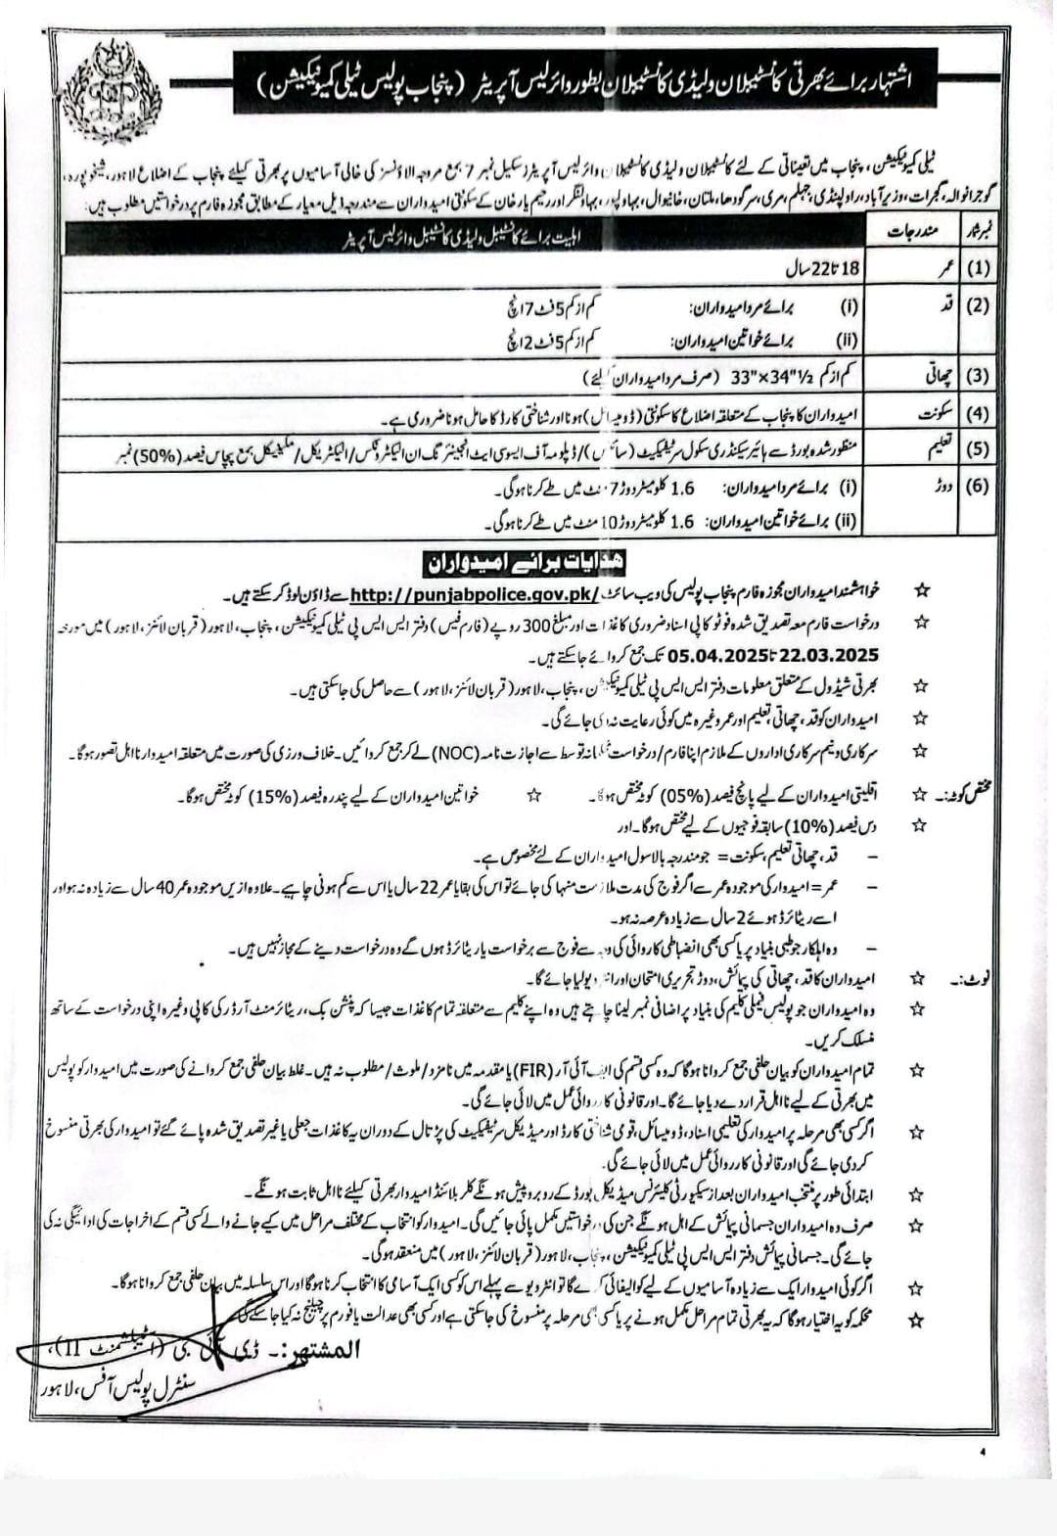 اشتہار برائے بھرتی کانسٹیبلان و لیڈی کانسٹیبلان بطور وائرلیس آپریٹر (پنجاب پولیس ٹیلی کمیونیکیشن)
ٹیلی کمیونیکیشن، پنجاب میں تعیناتی کے لئے کانسٹیبلان و لیڈی کانسٹیبلان وائرلیس آپریٹرز سکیل نمبر 7 بمع مروجہ الاؤنسز کی خالی آسامیوں پر بھرتی کیلئے پنجاب کے اضلاع لاہور، شیخوپورہ،
گوجرانوالہ، گجرات، وزیرآباد، راولپنڈی، جہلم، مری، سرگودھا، ملتان، خانیوال، بہاولپور، بہاولنگر اور رحیم یار خان کے سکونتی امیدواران سے مندرجہ ذیل معیار کے مطابق مجوزہ فارم پر درخواستیں مطلوب ہیں:
نمبر شمار مندرجات اہلیت برائے کانسٹیبل و لیڈی کانسٹیبل وائرلیس آپریٹر
(1) عمر 18 تا 22 سال
(2) قد (i) برائے مرد امیدواران: کم از کم 5 فٹ 7 انچ
(ii) برائے خواتین امیدواران: کم از کم 5 فٹ 2 انچ
(3) چھاتی کم از کم 33"×34"½ (صرف مرد امیدواران کیلئے)
(4) سکونت امیدواران کا پنجاب کے متعلقہ اضلاع کا سکونتی (ڈومیسائل) ہونا اور شناختی کارڈ کا حامل ہونا ضروری ہے۔
(5) تعلیم منظور شدہ بورڈ سے ہائیر سیکنڈری سکول سرٹیفکیٹ (سائنس)/ڈپلومہ آف ایسوسی ایٹ انجینئرنگ ان الیکٹرونکس/الیکٹریکل/مکینیکل بمع پچاس فیصد (50%) نمبر
(6) دوڑ (i) برائے مرد امیدواران: 1.6 کلومیٹر دوڑ 7 منٹ میں طے کرنا ہوگی۔
(ii) برائے خواتین امیدواران: 1.6 کلومیٹر دوڑ 10 منٹ میں طے کرنا ہوگی۔
ھدایات برائے امیدواران
☆ خواہشمند امیدواران مجوزہ فارم پنجاب پولیس کی ویب سائٹ http://punjabpolice.gov.pk/ سے ڈاؤن لوڈ کر سکتے ہیں۔
☆ درخواست فارم معہ تصدیق شدہ فوٹو کاپی اسناد ضروری کاغذات اور مبلغ 300 روپے (فارم فیس) دفتر ایس ایس پی ٹیلی کمیونیکیشن، پنجاب، لاہور (قربان لائنز، لاہور) میں مورخہ
22.03.2025 تا 05.04.2025 تک جمع کروائے جا سکتے ہیں۔
☆ بھرتی شیڈول کے متعلق معلومات دفتر ایس ایس پی ٹیلی کمیونیکیشن، پنجاب، لاہور (قربان لائنز، لاہور) سے حاصل کی جا سکتی ہیں۔
☆ امیدواران کو قد، چھاتی، تعلیم اور عمر وغیرہ میں کوئی رعایت نہ دی جائے گی۔
☆ سرکاری و نیم سرکاری اداروں کے ملازم اپنا فارم/درخواست محکمانہ توسط سے اجازت نامہ (NOC) لے کر جمع کروائیں۔ خلاف ورزی کی صورت میں متعلقہ امیدوار نااہل تصور ہوگا۔
مختص کوٹہ:۔ ☆ اقلیتی امیدواران کے لیے پانچ فیصد (05%) کوٹہ مختص ہوگا۔ ☆ خواتین امیدواران کے لیے پندرہ فیصد (15%) کوٹہ مختص ہوگا۔
☆ دس فیصد (10%) سابقہ فوجیوں کے لیے مختص ہوگا۔ اور
– قد، چھاتی، تعلیم، سکونت = جو مندرجہ بالا سول امیدواران کے لئے مخصوص ہے۔
– عمر = امیدوار کی موجودہ عمر سے اگر فوج کی مدت ملازمت منہا کی جائے تو اس کی بقایا عمر 22 سال یا اس سے کم ہونی چاہیے۔ علاوہ ازیں موجودہ عمر 40 سال سے زیادہ نہ ہو اور
اسے ریٹائرڈ ہوئے 2 سال سے زیادہ عرصہ نہ ہو۔
– وہ اہلکار جو طبی بنیاد پر یا کسی بھی انضباطی کاروائی کی وجہ سے فوج سے برخواست یا ریٹائرڈ ہوں گے وہ درخواست دینے کے مجاز نہیں ہیں۔
نوٹ:۔ ☆ امیدواران کا قد، چھاتی کی پیمائش، دوڑ تحریری امتحان اور انٹرویو لیا جائے گا۔
☆ وہ امیدواران جو پولیس فیملی کلیم کی بنیاد پر اضافی نمبر لینا چاہتے ہیں وہ اپنے کلیم سے متعلقہ تمام کاغذات جیسا کہ پنشن بک، ریٹائرمنٹ آرڈر کی کاپی وغیرہ اپنی درخواست کے ساتھ
منسلک کریں۔
☆ تمام امیدواران کو بیان حلفی جمع کروانا ہوگا کہ وہ کسی قسم کی ایف آئی آر (FIR) یا مقدمہ میں نامزد/ملوث/مطلوب نہ ہیں۔ غلط بیان حلفی جمع کروانے کی صورت میں امیدوار کو پولیس
میں بھرتی کے لیے نااہل قرار دے دیا جائے گا۔ اور قانونی کاروائی عمل میں لائی جائے گی۔
☆ اگر کسی بھی مرحلہ پر امیدوار کی تعلیمی اسناد، ڈومیسائل، قومی شناختی کارڈ اور میڈیکل سرٹیفکیٹ کی پڑتال کے دوران یہ کاغذات جعلی یا غیر تصدیق شدہ پائے گئے تو امیدوار کی بھرتی منسوخ
کر دی جائے گی اور قانونی کارروائی عمل میں لائی جائے گی۔
☆ ابتدائی طور پر منتخب امیدواران بعد از سیکیورٹی کلیئرنس میڈیکل بورڈ کے روبرو پیش ہونگے کلر بلائنڈ امیدوار بھرتی کیلئے نااہل ثابت ہونگے۔
☆ صرف وہ امیدواران جسمانی پیمائش کے اہل ہونگے جن کی درخواستیں مکمل پائی جائیں گی۔ امیدوار کو انتخاب کے مختلف مراحل میں کیے جانے والے کسی قسم کے اخراجات کی ادائیگی نہ کی
جائے گی۔ جسمانی پیمائش دفتر ایس ایس پی ٹیلی کمیونیکیشن، پنجاب، لاہور (قربان لائنز، لاہور) میں منعقد ہوگی۔
☆ اگر کوئی امیدوار ایک سے زیادہ آسامیوں کے لیے کوالیفائی کرے گا تو انٹرویو سے پہلے اس کو کسی ایک آسامی کا انتخاب کرنا ہوگا اور اس سلسلہ میں بیان حلفی جمع کروانا ہوگا۔
☆ محکمہ کو یہ اختیار ہوگا کہ یہ بھرتی تمام مراحل مکمل ہونے پر یا کسی بھی مرحلہ پر منسوخ کی جا سکتی ہے اور کسی بھی عدالت یا فورم پر چیلنج نہ کیا جا سکے گا
المشتھر:۔ ڈی آئی جی (اسٹیبلشمنٹ II)،
سنٹرل پولیس آفس، لاہور
4